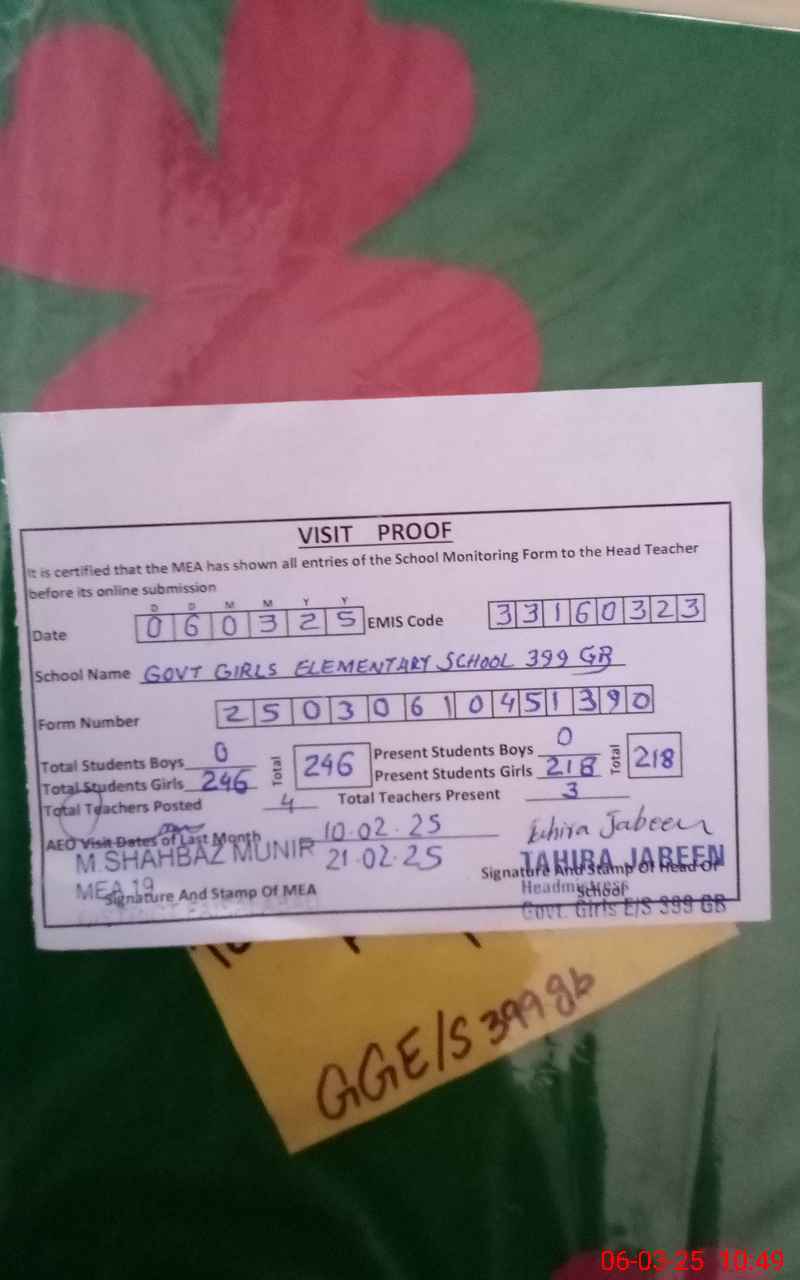 VISIT PROOF
It is certified that the MEA has shown all entries of the School Monitoring Form to the Head Teacher
before its online submission
D D M M Y Y
Date 0 6 0 3 2 5 EMIS Code 3 3 1 6 0 3 2 3
School Name GOVT GIRLS ELEMENTARY SCHOOL 399 GB
Form Number 2 5 0 3 0 6 1 0 4 5 1 3 9 0
Total Students Boys 0 Total 246 Present Students Boys 0 Total 218
Total Students Girls 246 Present Students Girls 218
Total Teachers Posted 4 Total Teachers Present 3
AEO Visit Dates of Last Month 10.02.25
21.02.25
M.SHAHBAZ MUNIR
MEA 19
Signature And Stamp Of MEA
Jabeen
TAHIRA JABEEN
Signature And Stamp Of Head Of
School
Govt. Girls E/S 399 GB
GGE/S 399 gb
06-03-25 10:49